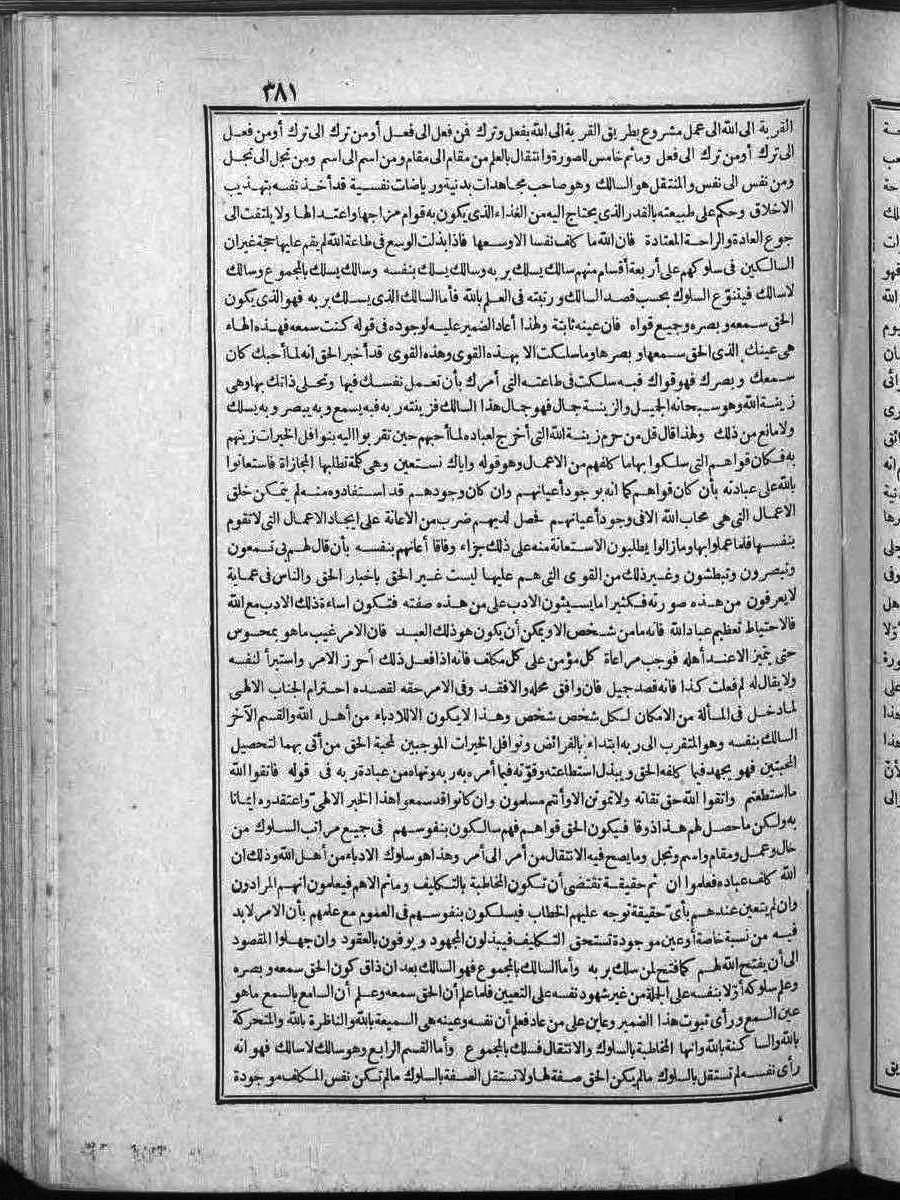 ٣٨١
القربة الى الله الى عمل مشروع بطريق القربة الى الله بفعل وترك فن فعل الى فعل أو من ترك الى ترك أو من فعل
الى ترك أو من ترك الى فعل وما ثم خامس للصورة وانتقال بالعلم من مقام الى مقام ومن اسم الى اسم ومن تجل الى تجل
ومن نفس الى نفس والمنتقل هو السالك وهو صاحب مجاهدات بدنية ورياضات نفسية قد أخذ نفسه بتهذيب
الاخلاق وحكم على طبيعته بالقدر الذى يحتاج اليه من الغذاء الذى يكون به قوام مزاجها واعتدالها ولا يلتفت الى
جوع العادة والراحة المعتادة فان الله ما كلف نفسا الا وسعها فاذا بذلت الوسع فى طاعة الله لم يقم عليها حجة غير ان
السالكين فى سلوكهم على أربعة أقسام منهم سالك يسلك بربه وسالك يسلك بنفسه وسالك يسلك بالمجموع وسالك
لا سالك فيتنوّع السلوك بحسب قصد السالك ورتبته فى العلم بالله فأما السالك الذى يسلك بربه فهو الذى يكون
الحق سمعه وبصره وجميع قواه فان عينه ثابتة ولهذا أعاد الضمير عليه لوجوده فى قوله كنت سمعه فهذه الهاء
هى عينك الذى الحق سمعها وبصرها وما سلكت الا بهذه القوى وهذه القوى قد أخبر الحق انه لما أحبك كان
سمعك وبصرك فهو قواك فبه سلكت فى طاعته التى أمرك بأن تعمل نفسك فيها وتحلى ذاتك بها وهى
زينة الله وهو سبحانه الجميل والزينة جمال فهو جمال هذا السالك فزينته ربه فبه يسمع وبه يبصر وبه يسلك
ولا مانع من ذلك ولهذا قال قل من حرم زينة الله التى أخرج لعباده لما أحبهم حين تقربوا اليه بنوافل الخيرات زينهم
به فكان قواهم التى سلكوا بها ما كلفهم من الاعمال وهو قوله واياك نستعين وهى كلمة تطلبها المجازاة فاستعانوا
بالله على عبادته بأن كان قواهم كما انه بوجود أعيانهم وان كان وجودهم قد استفادوه منه لم يتمكن خلق
الاعمال التى هى محاب الله الا فى وجود أعيانهم فحصل لديهم ضرب من الاعانة على ايجاد الاعمال التى لا تقوم
بنفسها فلما عملوا بها وما زالوا يطلبون الاستعانة منه على ذلك جزاء وفاقا أعانهم بنفسه بأن قال لهم بى تسمعون
وتبصرون وتبطشون وغير ذلك من القوى التى هم عليها ليست غير الحق باخبار الحق والناس فى عماية
لا يعرفون من هذه صورته فكثيرا ما يسيئون الادب على من هذه صفته فتكون اساءة ذلك الادب مع الله
فالاحتياط تعظيم عباد الله فانه ما من شخص الا ويمكن أن يكون هو ذلك العبد فان الامر غيب ما هو بمحسوس
حتى يتميز الا عند أهله فوجب مراعاة كل مؤمن على كل مكلف فانه اذا فعل ذلك أحرز الامر واستبرأ لنفسه
ولا يقال له لم فعلت كذا فانه قصد جميل فان وافق محله والا فقد وفى الامر حقه لقصده احترام الجناب الالهى
لما دخل فى المسألة من الامكان لكل شخص شخص وهذا لا يكون الا للادباء من أهل الله والقسم الآخر
السالك بنفسه وهو المتقرب الى ربه ابتداء بالفرائض ونوافل الخيرات الموجبين لمحبة الحق من أتى بهما لتحصيل
المحبتين فهو يجهد فيما كلفه الحق ويبذل استطاعته وقوّته فيما أمره به ربه ونهاه من عبادة ربه فى قوله فاتقوا الله
ما استطعتم واتقوا الله حق تقاته ولا تموتن الا وأنتم مسلمون وان كانوا قد سمعوا هذا الخبر الالهىّ واعتقدوه ايمانا
به ولكن ما حصل لهم هذا ذوقا فيكون الحق قواهم فهم سالكون بنفوسهم فى جميع مراتب السلوك من
حال وعمل ومقام واسم وتجل وما يصح فيه الانتقال من أمر الى أمر وهذا هو سلوك الادباء من أهل الله وذلك ان
الله كلف عباده فعلموا ان ثم حقيقة تقتضى أن تكون المخاطبة بالتكليف وما ثم الا هم فيعلمون انهم المرادون
وان لم يتعين عندهم بأىّ حقيقة توجه عليهم الخطاب فيسلكون بنفوسهم فى العموم مع علمهم بأن الامر لا بد
فيه من نسبة خاصة أو عين موجودة تستحق التكليف فيبذلون المجهود ويوفون بالعقود وان جهلوا المقصود
الى أن يفتح الله لهم كما فتح لمن سلك بربه وأما السالك بالمجموع فهو السالك بعد ان ذاق كون الحق سمعه وبصره
وعلم سلوكه أوّلا بنفسه على الجلة من غير شهود نفسه على التعيين فلما علم أن الحق سمعه وعلم أن السامع بالسمع ما هو
عين السمع ورأى ثبوت هذا الضمير وعاين على من عاد فعلم أن نفسه وعينه هى السميعة بالله والناظرة بالله والمتحركة
بالله والساكنة بالله وانها المخاطبة بالسلوك والانتقال فسلك بالمجموع وأما القسم الرابع وهو سالك لا سالك فهو انه
رأى نفسه لم تستقل بالسلوك ما لم يكن الحق صفة لها ولا تستقل الصفة بالسلوك ما لم تكن نفس المكلف موجودة